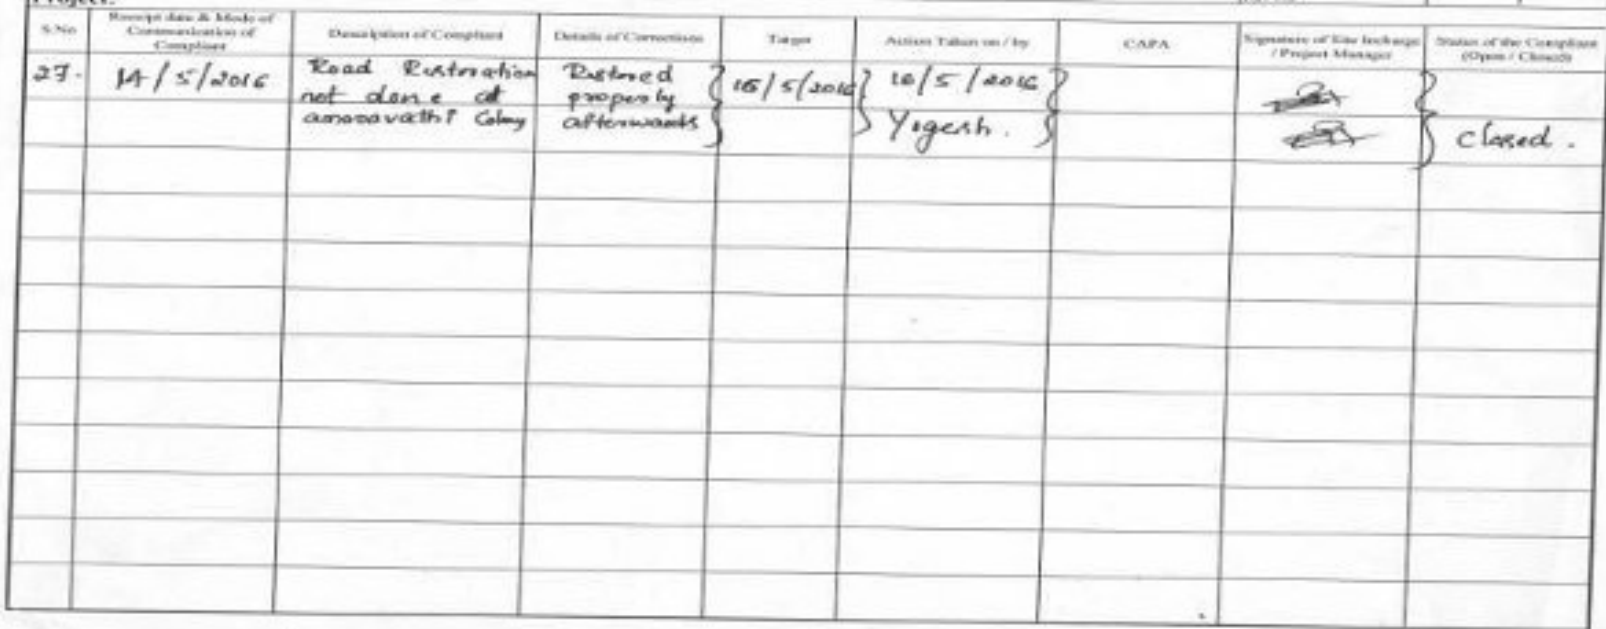 Project:
S.No
Receipt date & Mode of
Communication of
Compliant
Description of Compliant
Details of Corrections
Target
Action Taken on / by
CAPA
Signature of Site Incharge
/ Project Manager
Status of the Compliant
(Open / Closed)
27.
14/5/2016
Road Restoration
not done at
amaravathi Colony
Restored
properly
afterwards
16/5/2016
16/5/2016
Yogesh.
Closed.